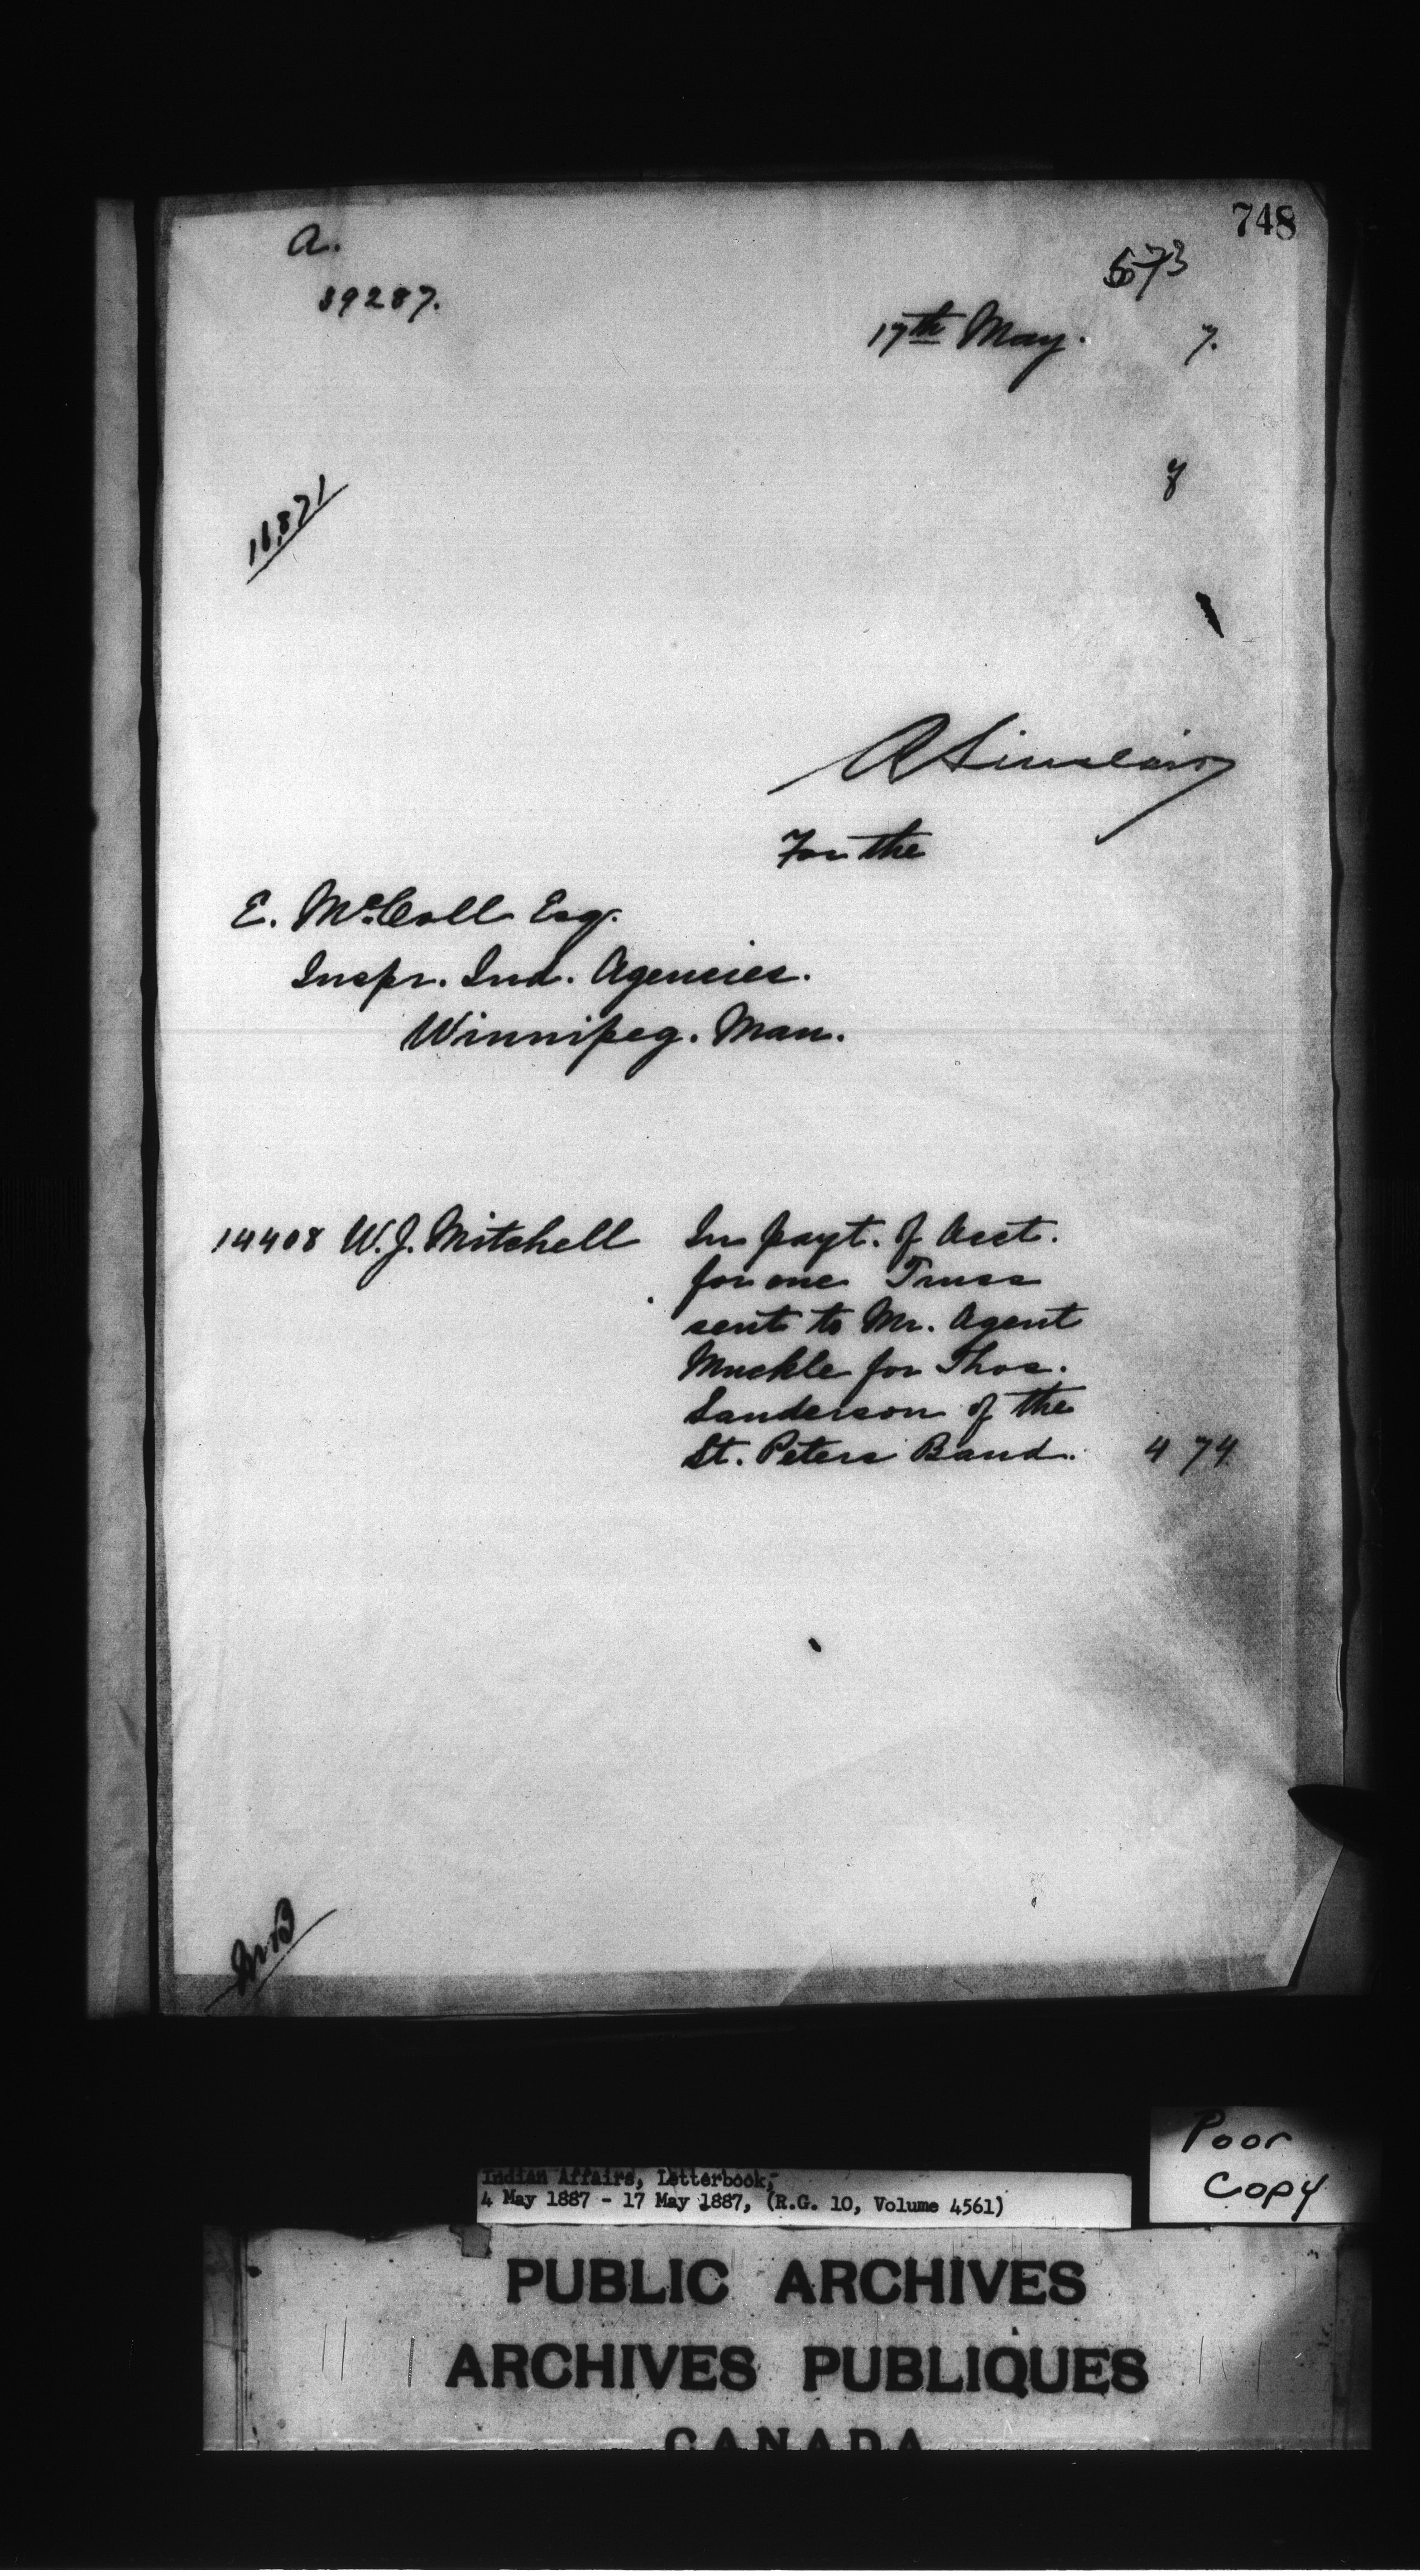 748
a.
573
39287.
17th May. 7.
y
16,871
A Sinclair
For the
E. McColl Esq.
Inspr. Ind. Agencies.
Winnipeg. Man.
14408 W. J. Mitchell In payt. of Acct.
for one Truss
sent to Mr. Agent
Muckle for Thos.
Sanderson of the
St. Peters Band. 4 74
Poor
Copy
Indian Affairs, Letterbook,
4 May 1887 - 17 May 1887, (R.G. 10, Volume 4561)
PUBLIC ARCHIVES
ARCHIVES PUBLIQUES
CANADA